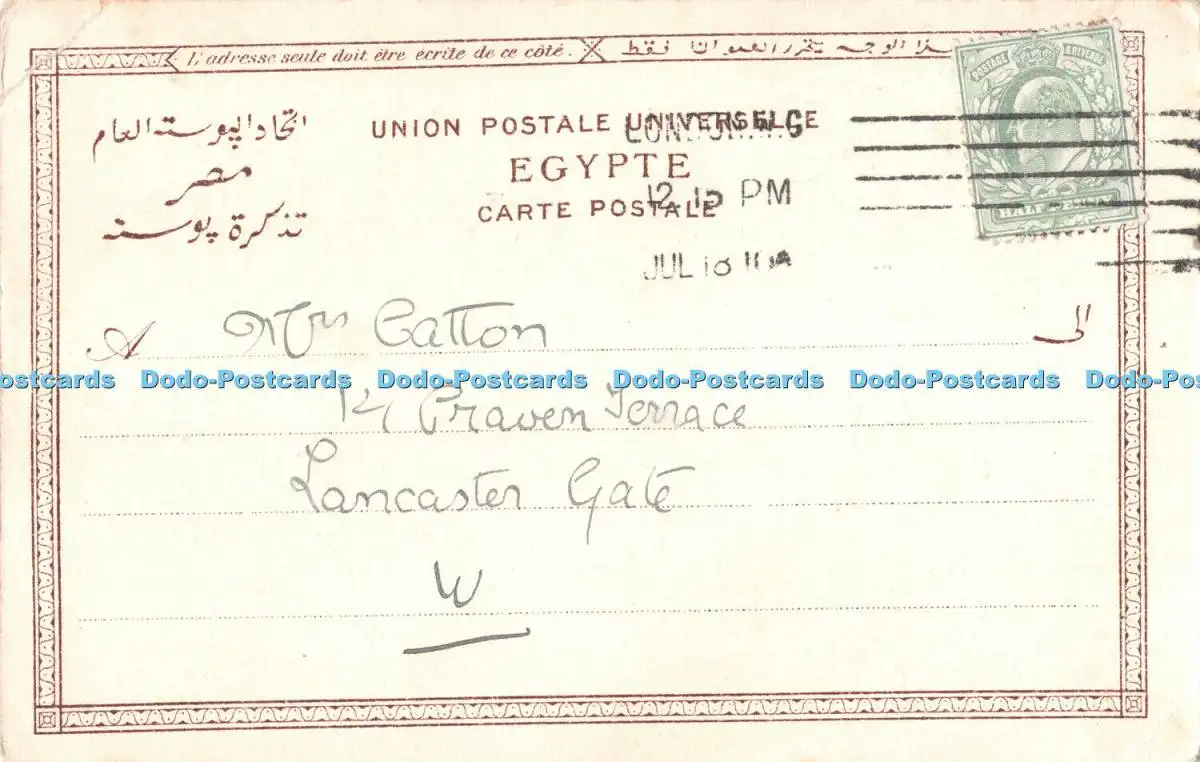 L'adresse seule doit être écrite de ce côté.
هذا الوجه يتحرر العنوان فقط
POSTAGE REVENUE
HALF PENNY
اتحاد البوسته العام
مصر
تذكرة بوسته
UNION POSTALE UNIVERSELLE
EGYPTE
CARTE POSTALE
LONDON. W.C
12.15 PM
JUL 18 10
A Mrs Catton الى
Dodo-Postcards Dodo-Postcards Dodo-Postcards Dodo-Postcards
Craven Terrace
Lancaster Gate
W